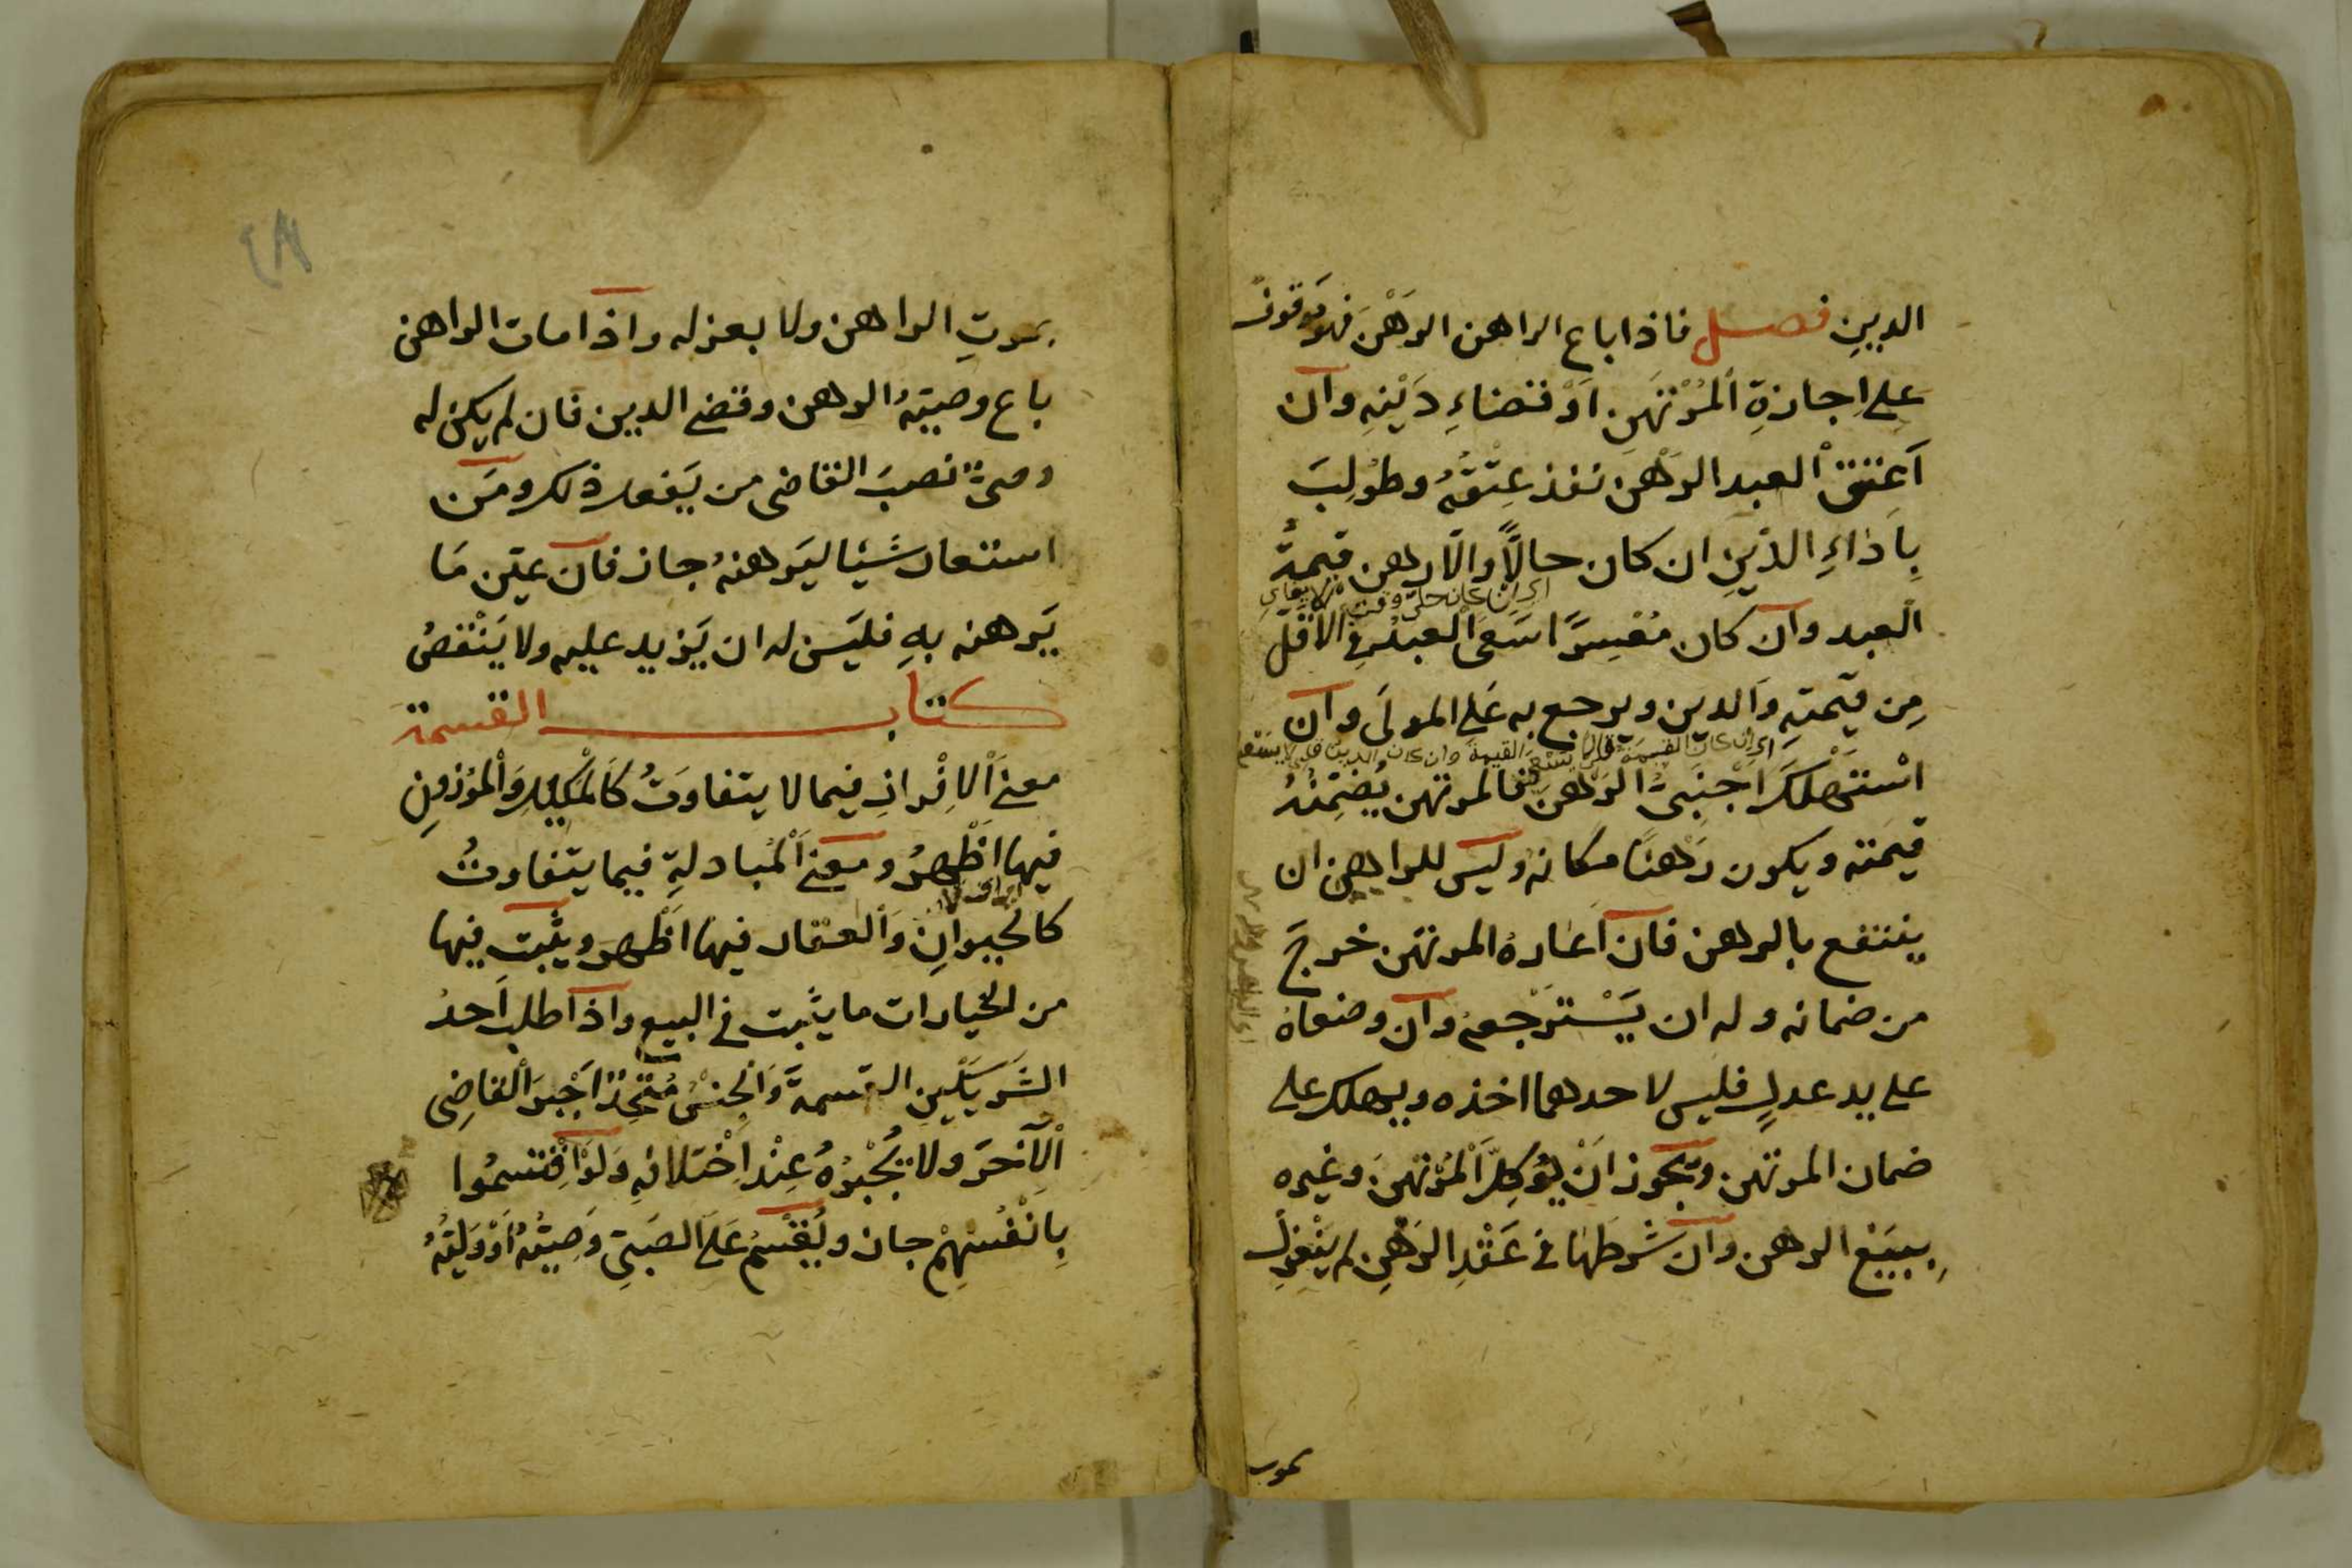 الدينِ فصل فاذا باع الراهن الرَهْنَ فهو مَوقوف
على اِجازةِ اْلمُرْتَهَنِ اَوْ قضاءِ دَيْنِهِ وان
اَعتقَ العبد الرَهْن نفذ عِتْقُهُ وطُولِبَ
بِاَدَاءِ الدَّينِ ان كان حالاًّ والاّ رهن قيمةَ
اى ان كان حلّ وقت الايفاء
العبد وان كان مُعْسِرًا سَعَى اْلعبدُ فى الاَقَلّ
مِن قيمتِهِ وَالدين ويرجع به عَلى المولَى وان
اى ان كان القيمة
اسْتَهْلَكَ اَجْنَبِىٌّ الرَهْنَ فالمرتهن يُضَمِّنُهُ
قيمَته ويكون رَهْنًا مكانه وليس للراهن ان
ينتفع بالرهن فان اَعَارهُ المرتهَن خرجَ
من ضمانه وله ان يَسْتَرْجعَهُ وان وضعاهُ
على يد عدلٍ فليس لاحدهما اخذه ويهلك على
ضمان المرتهَن ويجوز اَنْ يُؤكِلَّ اْلمُرْتَهَنَ وغيره
بِبيَيْعِ الرهن وان شرطَهَا فى عَقْدِ الرَهْنِ لم يَنْعَزِلْ
بموت
٤٨
بموتِ الراهن ولا بعزله واذا مات الراهن
باع وصيّهُ الرهن وقضى الدين فان لم يكن له
وصىٌّ نصبَ القاضى من يَفعل ذلك ومَن
استعار شَيْئا ليَرهنهُ جاز فان عيّن مَا
يَرهنه بهِ فليَس له ان يَزيد عليه ولا يَنْقصُ
كتاب القسمة
معنى اْلاِفْرازِ فيما لا يتفاوَتُ كَاْلمَكِيلِ وَاْلمَوْزونِ
فيها اَظْهرُ ومعنى اَلْمُبادلةِ فيما يتفاوتُ
كالحيوانِ وَاْلعقار فيها اَظْهر ويثبت فيها
من الخيارات ما يثبت فى البيع واذا طلب اَحدُ
الشَرِيكَيْنِ القسمةَ وَاْلجِنْسُ مُتَّحِدٌ اَجْبرَ اْلقاضِى
اْلآخَرَ ولا يُجْبِرُهُ عِنْد اِخْتلافِهِ وَلَوْ اِقْتَسمُوا
بِاَنْفُسِهِمْ جاز ويُقْسَمُ عَلَى الصَبِىّ وَصِيُّهُ اَوْ وَلِيُّهُ